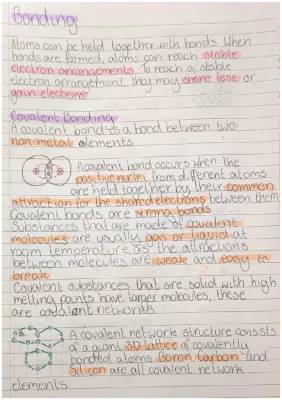 Bonding
Atoms can be held together with bonds. When
bonds are formed, atoms can reach stable
electron arrangements. To reach a stable
electron arrangement they may share, lose or
gain electrons
Covalent Bonding
A covalent bond is a bond between two
non-metal elements
A covalent bond occurs when the
positive nuclei from different atoms
are held together by their common
attraction for the shared electrons between them
Covalent bonds are strong bonds
Substances that are made of covalent
molecules are usually gas or liquid at
room temperature as the attractions
between molecules are weak and easy to
break
Covalent substances that are solid with high
melting points have larger molecules, these
are covalent networks.
A covalent network structure consists
of a giant 3D lattice of covalently
bonded atoms. Boron, Carbon and
Silicon are all covalent network
elements